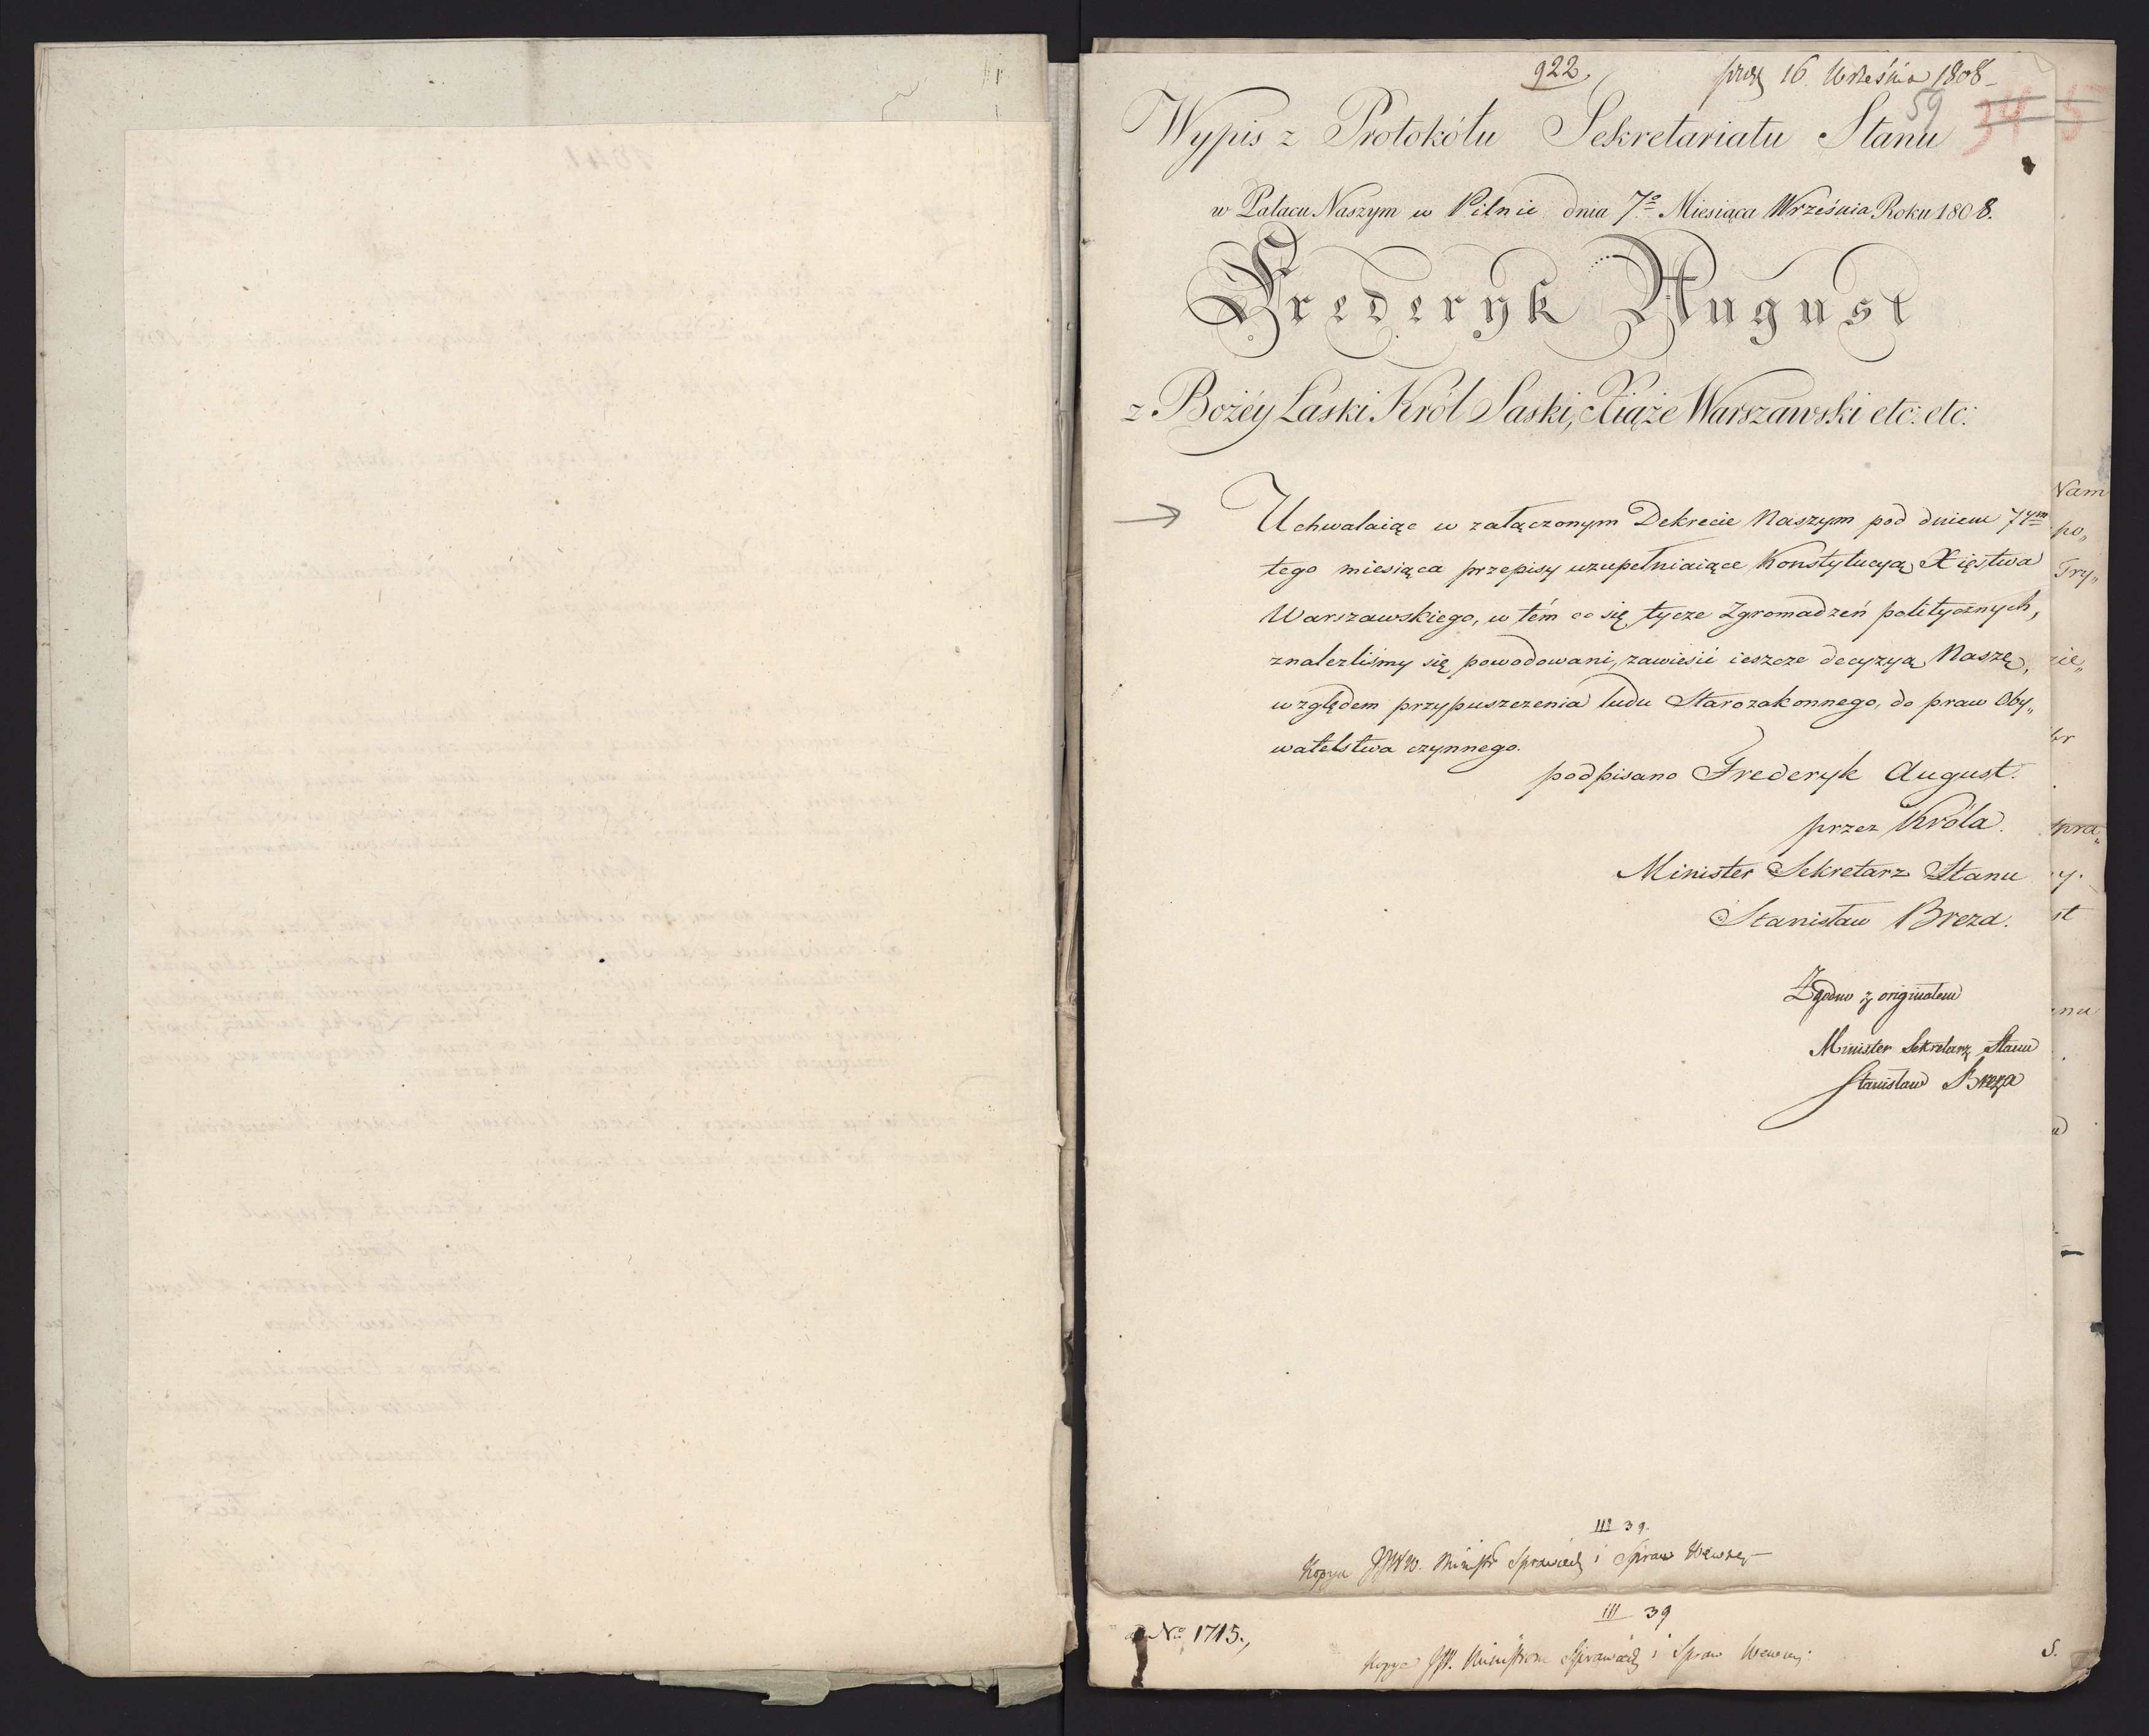 922.
prez 16 Września 1808
59
34 5
Wypis z Protokółu Sekretariatu Stanu
w Pałacu Naszym w Pilnic dnia 7º Miesiąca Września Roku 1808.
Frederyk August
z Bożéy Łaski Król Saski, Xiąże Warszawski etc: etc:
Uchwalaiąc w załączonym Dekrecie Naszym pod dniem 7ym
tego miesiąca przepisy uzupełniaiące Konstytucyą Xięstwa
Warszawskiego, w tém co się tycze Zgromadzeń politycznych,
znalezliśmy się powodowani, zawiesić ieszcze decyzyą Naszę,
względem przypuszczenia ludu Starozakonnego, do praw Oby„
watelstwa czynnego.
podpisano Frederyk August.
przez Króla.
Minister Sekretarz Stanu
Stanisław Breza.
Zgodno z originałem
Minister Sekretarz Stanu
Stanisław Breza
Nam
po„
Fry„
zie„
pra„
y.
st
III 39.
Kopya JJWW. Ministr Sprawiedl i Spraw Wewnę
III 39
No 1715.,
Kopya JW. Ministrom Sprawiedl i Spraw Wewnę:
S.